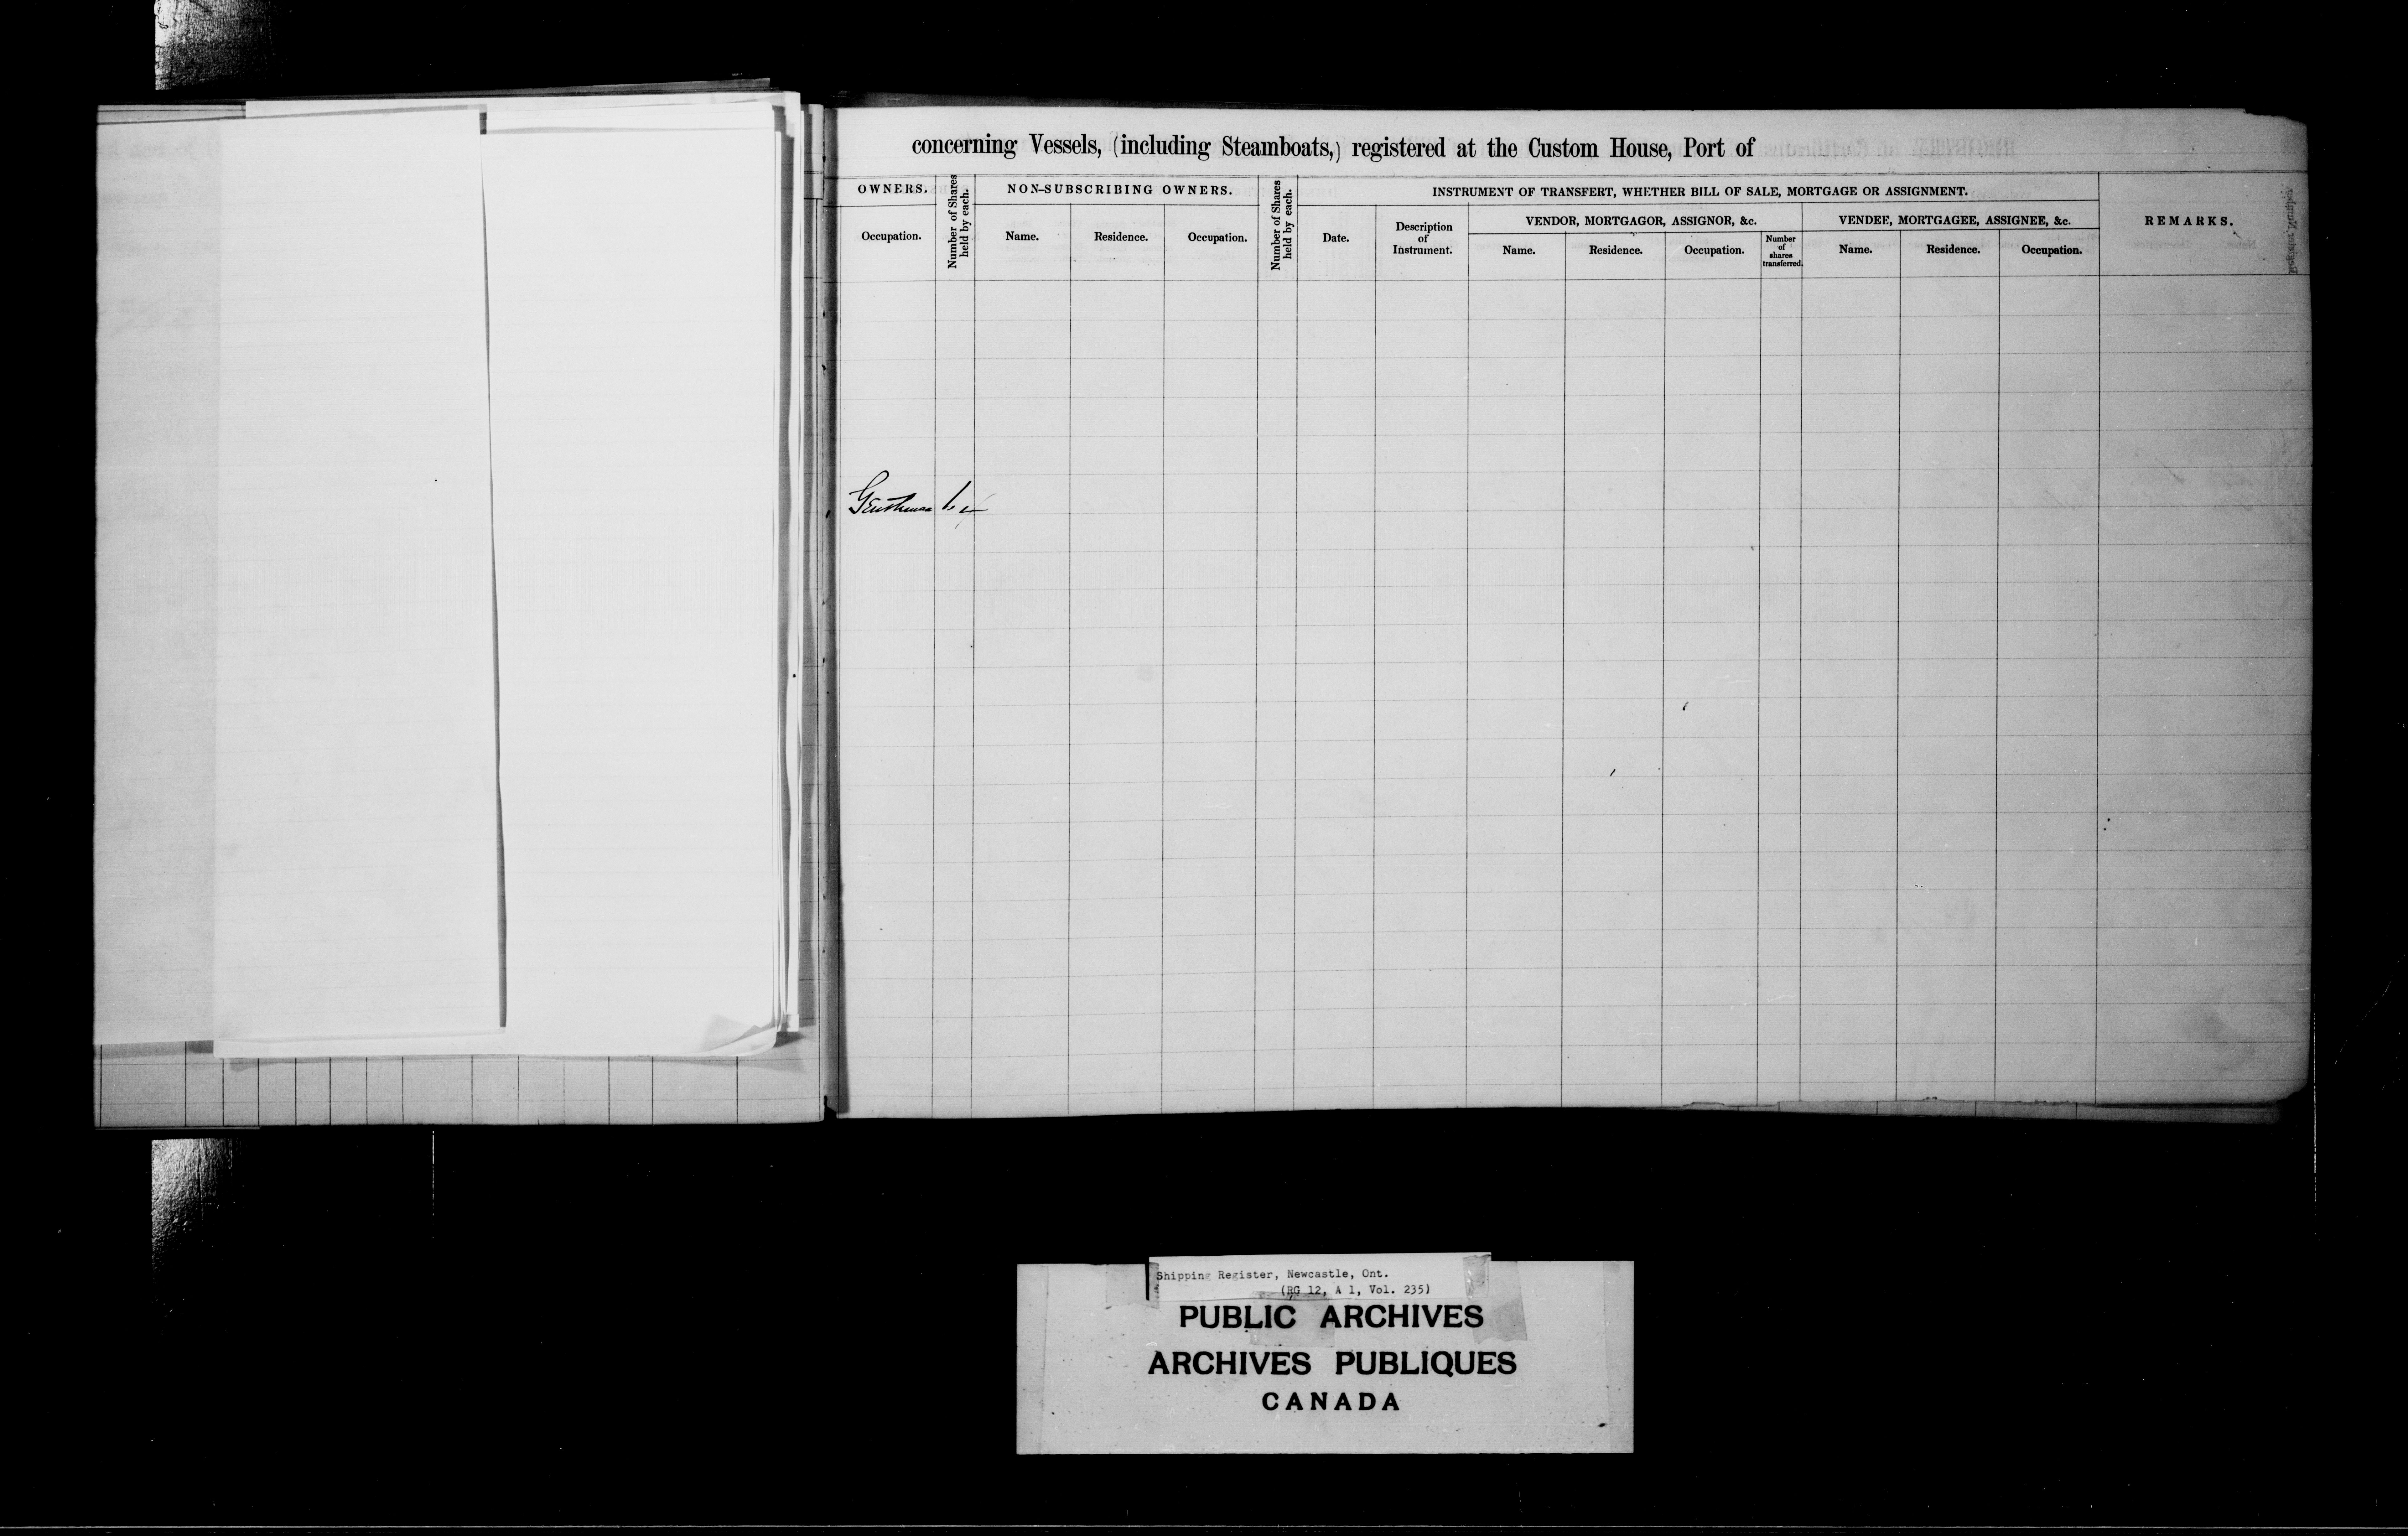 concerning Vessels, (including Steamboats,) registered at the Custom House, Port of
OWNERS.
Number of Shares held by each.
NON-SUBSCRIBING OWNERS.
Number of Shares held by each.
INSTRUMENT OF TRANSFERT, WHETHER BILL OF SALE, MORTGAGE OR ASSIGNMENT.
REMARKS.
Occupation.
Name.
Residence.
Occupation.
Date.
Description
of
Instrument.
VENDOR, MORTGAGOR, ASSIGNOR, &c.
VENDEE, MORTGAGEE, ASSIGNEE, &c.
Name.
Residence.
Occupation.
Number
of
shares
transferred.
Name.
Residence.
Occupation.
Gentleman 64
Shipping Register, Newcastle, Ont.
(RG 12, A 1, Vol. 235)
PUBLIC ARCHIVES
ARCHIVES PUBLIQUES
CANADA